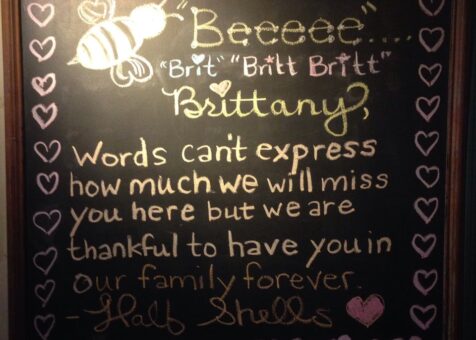 "Beeeee"....
"Brit" "Britt Britt"
Brittany,
Words can't express
how much we will miss
you here but we are
thankful to have you in
our family forever.
- Half Shells